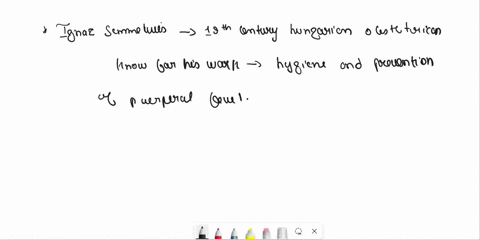 Ignaz Semmelweis → 19th century hungarian obstetrician
know for his work → hygiene and prevention
of puerperal fever.